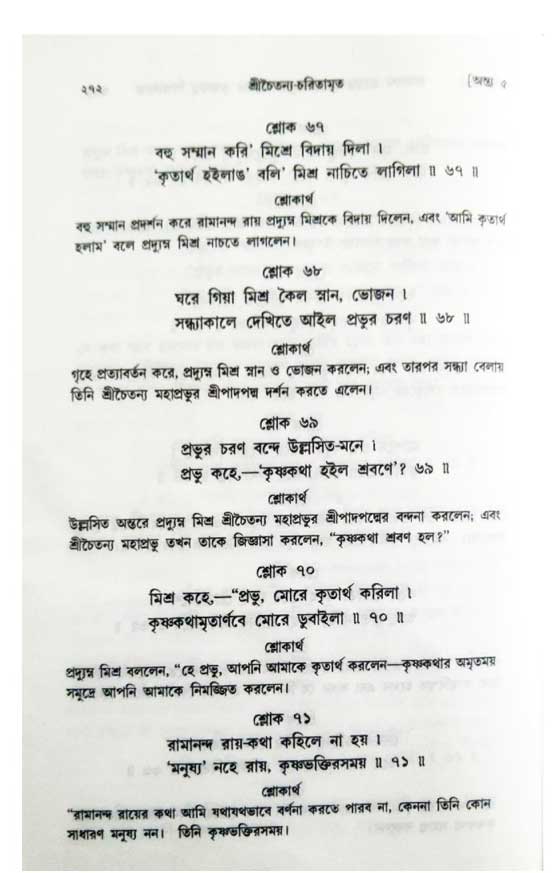 ২১২ শ্রীচৈতন্য-চরিতামৃত [অন্ত্য ৫
শ্লোক ৬৭
বহু সম্মান করি' মিশ্রে বিদায় দিলা ।
'কৃতার্থ হইলাঙ' বলি' মিশ্র নাচিতে লাগিলা ॥ ৬৭ ॥
শ্লোকার্থ
বহু সম্মান প্রদর্শন করে রামানন্দ রায় প্রদ্যুম্ন মিশ্রকে বিদায় দিলেন, এবং 'আমি কৃতার্থ
হলাম' বলে প্রদ্যুম্ন মিশ্র নাচতে লাগলেন।
শ্লোক ৬৮
ঘরে গিয়া মিশ্র কৈল স্নান, ভোজন ।
সন্ধ্যাকালে দেখিতে আইল প্রভুর চরণ ॥ ৬৮ ॥
শ্লোকার্থ
গৃহে প্রত্যাবর্তন করে, প্রদ্যুম্ন মিশ্র স্নান ও ভোজন করলেন; এবং তারপর সন্ধ্যা বেলায়
তিনি শ্রীচৈতন্য মহাপ্রভুর শ্রীপাদপদ্ম দর্শন করতে এলেন।
শ্লোক ৬৯
প্রভুর চরণ বন্দে উল্লসিত-মনে ।
প্রভু কহে,—'কৃষ্ণকথা হইল শ্রবণে'? ৬৯ ॥
শ্লোকার্থ
উল্লসিত অন্তরে প্রদ্যুম্ন মিশ্র শ্রীচৈতন্য মহাপ্রভুর শ্রীপাদপদ্মের বন্দনা করলেন; এবং
শ্রীচৈতন্য মহাপ্রভু তখন তাকে জিজ্ঞাসা করলেন, “কৃষ্ণকথা শ্রবণ হল?”
শ্লোক ৭০
মিশ্র কহে,—“প্রভু, মোরে কৃতার্থ করিলা ।
কৃষ্ণকথামৃতার্ণবে মোরে ডুবাইলা ॥ ৭০ ॥
শ্লোকার্থ
প্রদ্যুম্ন মিশ্র বললেন, “হে প্রভু, আপনি আমাকে কৃতার্থ করলেন—কৃষ্ণকথার অমৃতময়
সমুদ্রে আপনি আমাকে নিমজ্জিত করলেন।
শ্লোক ৭১
রামানন্দ রায়-কথা কহিলে না হয় ।
'মনুষ্য' নহে রায়, কৃষ্ণভক্তিরসময় ॥ ৭১ ॥
শ্লোকার্থ
“রামানন্দ রায়ের কথা আমি যথাযথভাবে বর্ণনা করতে পারব না, কেননা তিনি কোন
সাধারণ মনুষ্য নন। তিনি কৃষ্ণভক্তিরসময়।